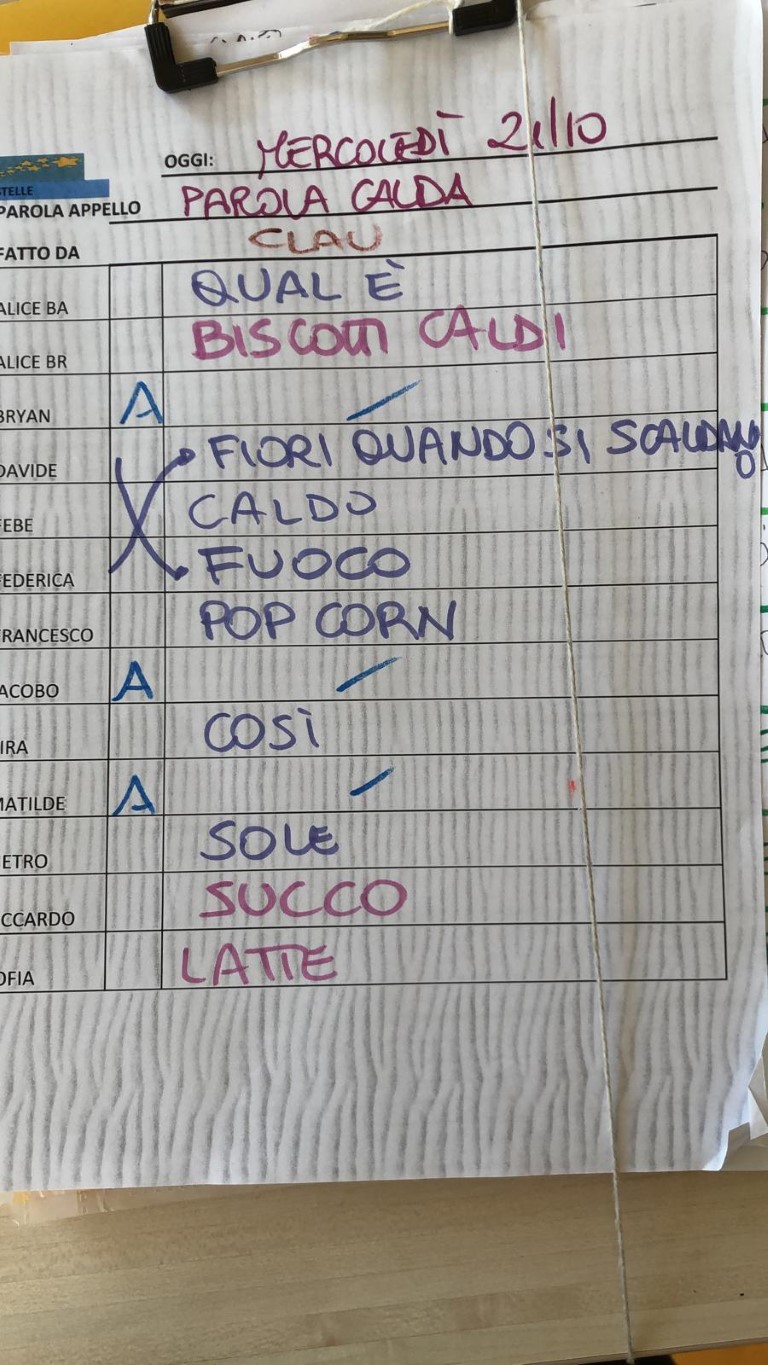 OGGI: MERCOLEDÌ 21/10
STELLE
PAROLA APPELLO PAROLA CALDA
FATTO DA CLAU
ALICE BA QUAL È
ALICE BR BISCOTTI CALDI
BRYAN A /
DAVIDE FIORI QUANDO SI SCALDANO
FEBE CALDO
FEDERICA FUOCO
FRANCESCO POP CORN
ACOBO A /
IRA COSÌ
MATILDE A /
ETRO SOLE
CCARDO SUCCO
OFIA LATTE